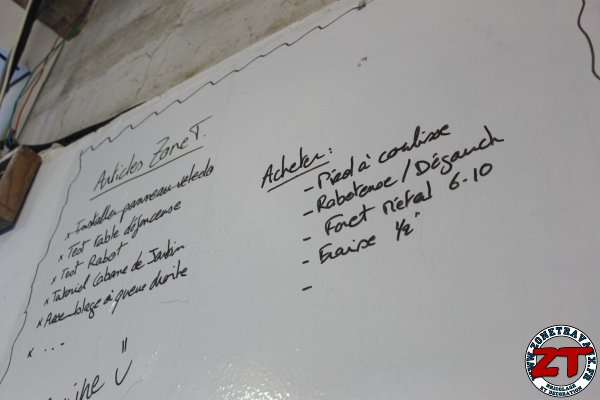 Articles Zone T.
x Installer panneau veleda
x Test table défonceuse
x Test Rabot
x Tutoriel Cabane de Jardin
x Assemblage à queue droite
x ...
Acheter :
- Pied à coulisse
- Raboteuse / Dégauch
- Foret Métal 6-10
- Fraise 1/2"
-
WWW.ZONETRAVAUX.FR
ZT
BRICOLAGE
ET DÉCORATION